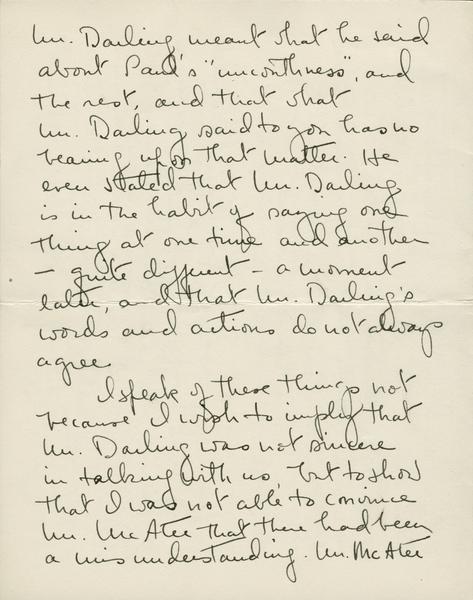 Mr. Darling meant what he said
about Paul's "unworthiness", and
the rest, and that what
Mr. Darling said to you has no
bearing upon that matter. He
even stated that Mr. Darling
is in the habit of saying one
thing at one time and another
— quite different — a moment
later, and that Mr. Darling's
words and actions do not always
agree.
I speak of these things not
because I wish to imply that
Mr. Darling was not sincere
in talking with us, but to show
that I was not able to convince
Mr. McAtee that there had been
a misunderstanding. Mr. McAtee